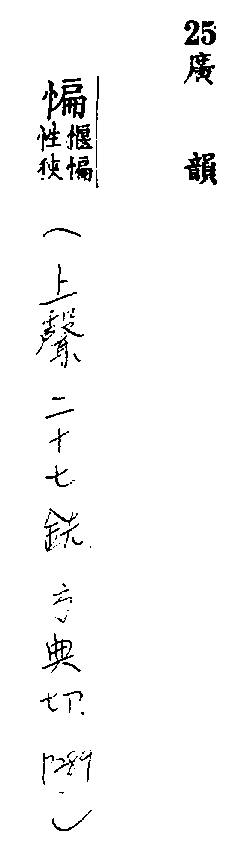 25 廣韻
惼 揠惼性狹
(上聲 二十七 銑 方典切 P289.)